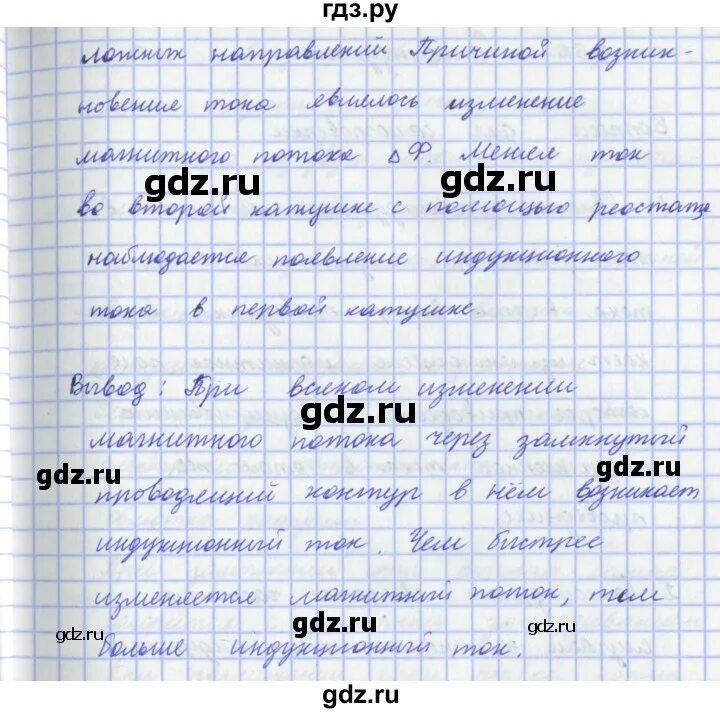 гдз.ру
ложных направлений Причиной возник-
новения тока явилось изменение
магнитного потока ΔФ. Меняя ток
gdz.ru gdz.ru
во второй катушке с помощью реостата
наблюдается появление индукционного
тока в первой катушке.
Вывод: При всяком изменении
gdz.ru
магнитного потока через замкнутый
gdz.ru gdz.ru
проводящий контур в нём возникает
индукционный ток. Чем быстрее
изменяется магнитный поток, тем
gdz.ru gdz.ru gdz.ru
больше индукционный ток.
gdz.ru